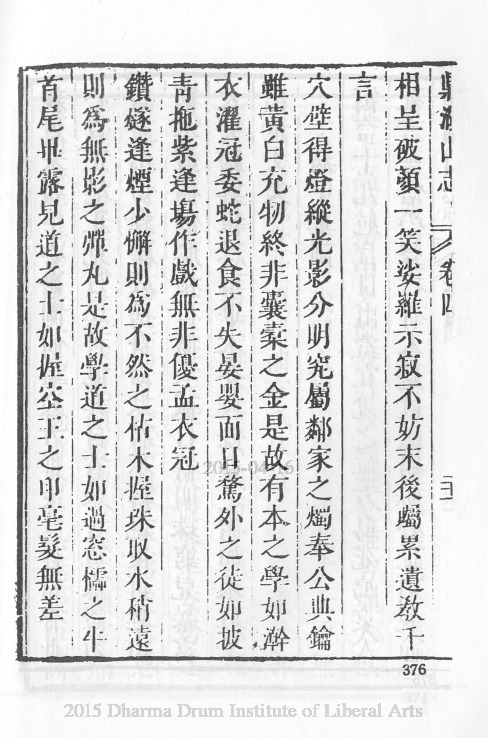 卷四
相呈破顏一笑娑羅示寂不妨末後囑累遺教千
言
穴壁得燈縱光影分明究屬鄰家之燭奉公典鑰
雖黃白充物終非囊橐之金是故有本之學如澣
衣濯冠委蛇退食不失晏嬰面目騖外之徒如披
青拖紫逢場作戲無非優孟衣冠
鑽燧逢煙少懈則為不然之枯木握珠取水稍遠
則為無影之彈丸是故學道之士如過窓櫺之牛
首尾畢露見道之士如握空王之印毫髮無差
376
2015-04-15
2015 Dharma Drum Institute of Liberal Arts